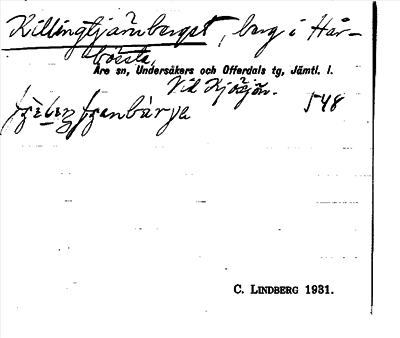 Killingtjärnberget, berg i Hår-
börsta,
Åre sn, Undersåkers och Offerdals tg, Jämtl. l.
Vid Kjösjön.
548
C. LINDBERG 1931.